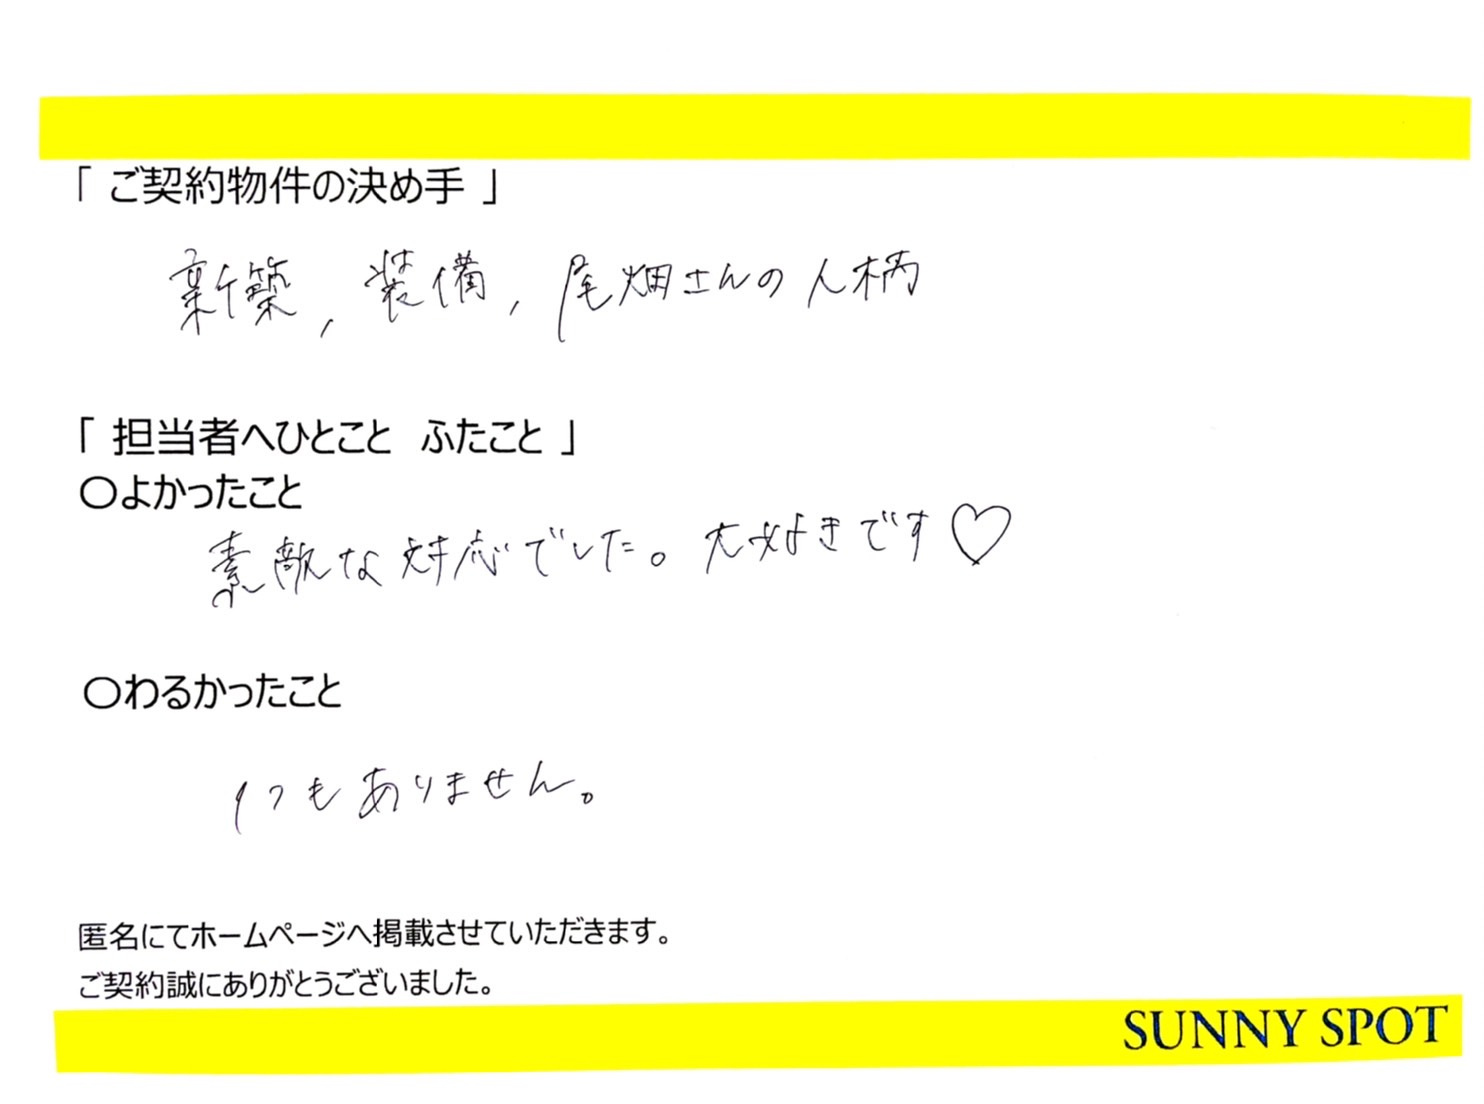 「 ご契約物件の決め手 」
新築, 装備, 尾畑さんの人柄
「 担当者へひとこと ふたこと 」
○よかったこと
素敵な対応でした。大好きです♡
○わるかったこと
1つもありません。
匿名にてホームページへ掲載させていただきます。
ご契約誠にありがとうございました。
SUNNY SPOT